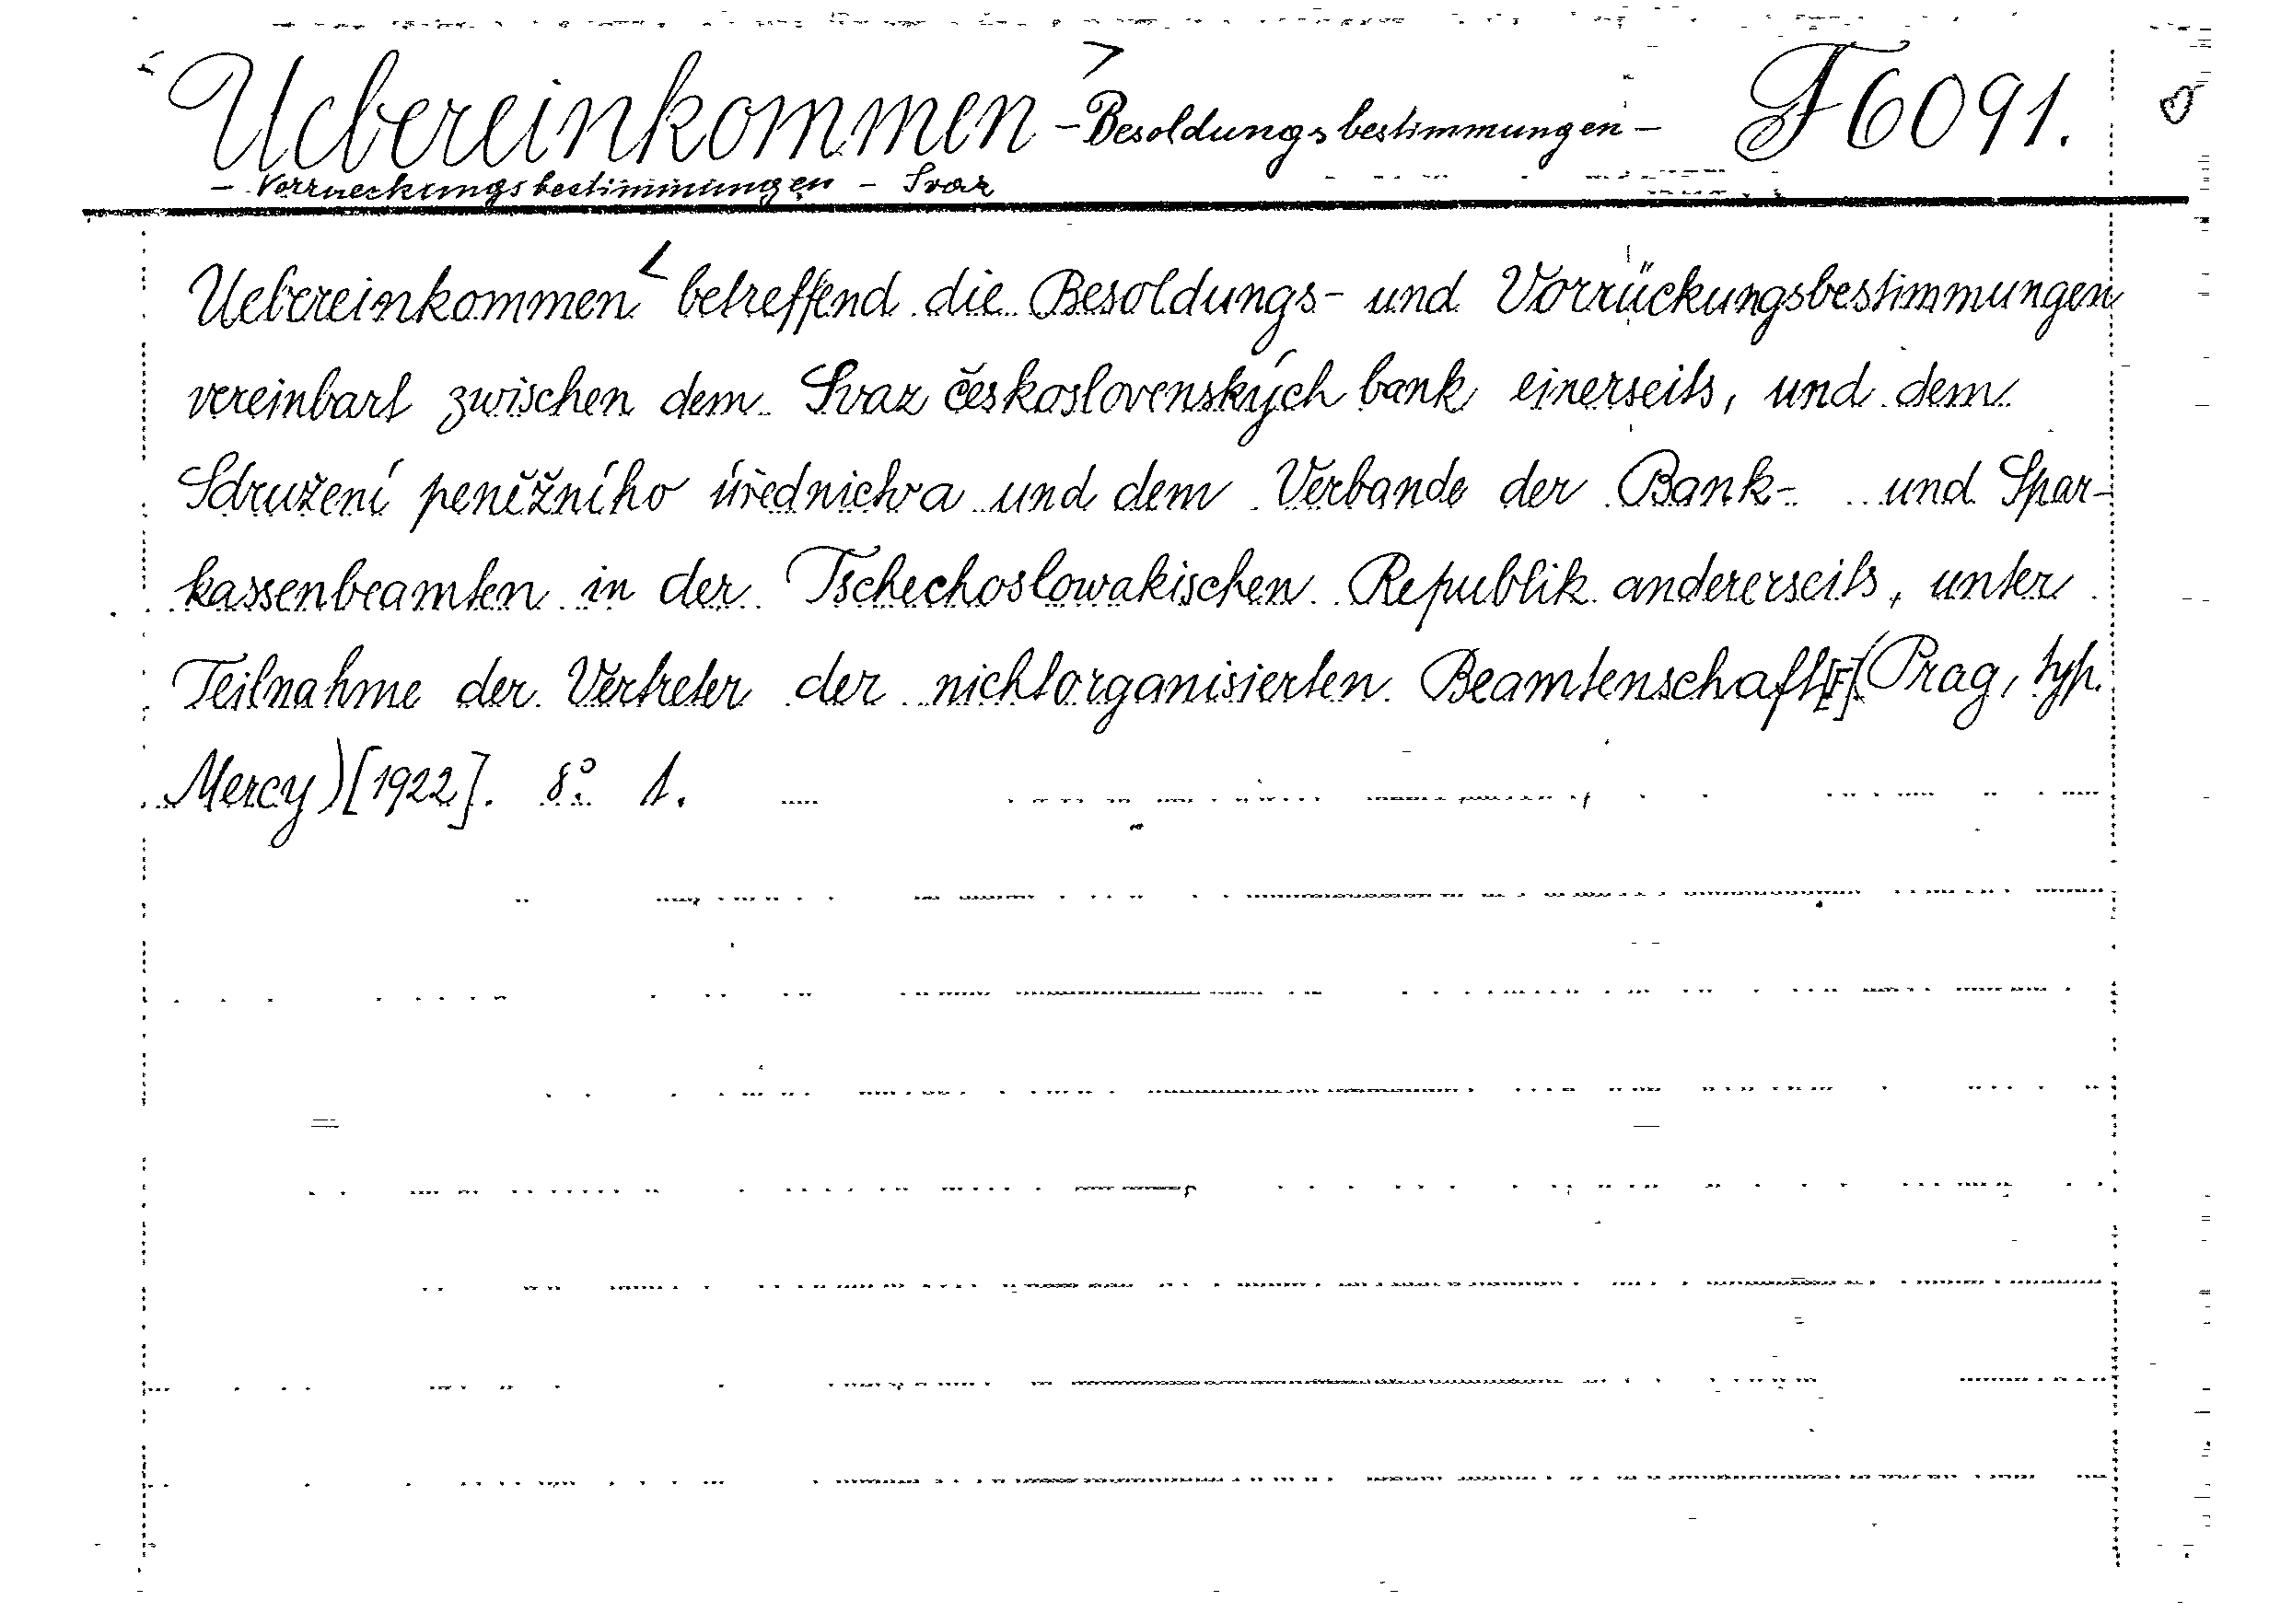 Uebereinkommen - Besoldungsbestimmungen - F 6091.
- Vorrueckungsbestimmungen - Svaz
Uebereinkommen betreffend die Besoldungs- und Vorrückungsbestimmungen
vereinbart zwischen dem Svaz československých bank einerseits, und dem
Sdružení peněžního úřednictva und dem Verbande der Bank- und Spar-
kassenbeamten in der Tschechoslowakischen Republik andererseits, unter
Teilnahme der Vertreter der nichtorganisierten Beamtenschaft[.] (Prag, typ.
Mercy) [1922]. 8° 1.